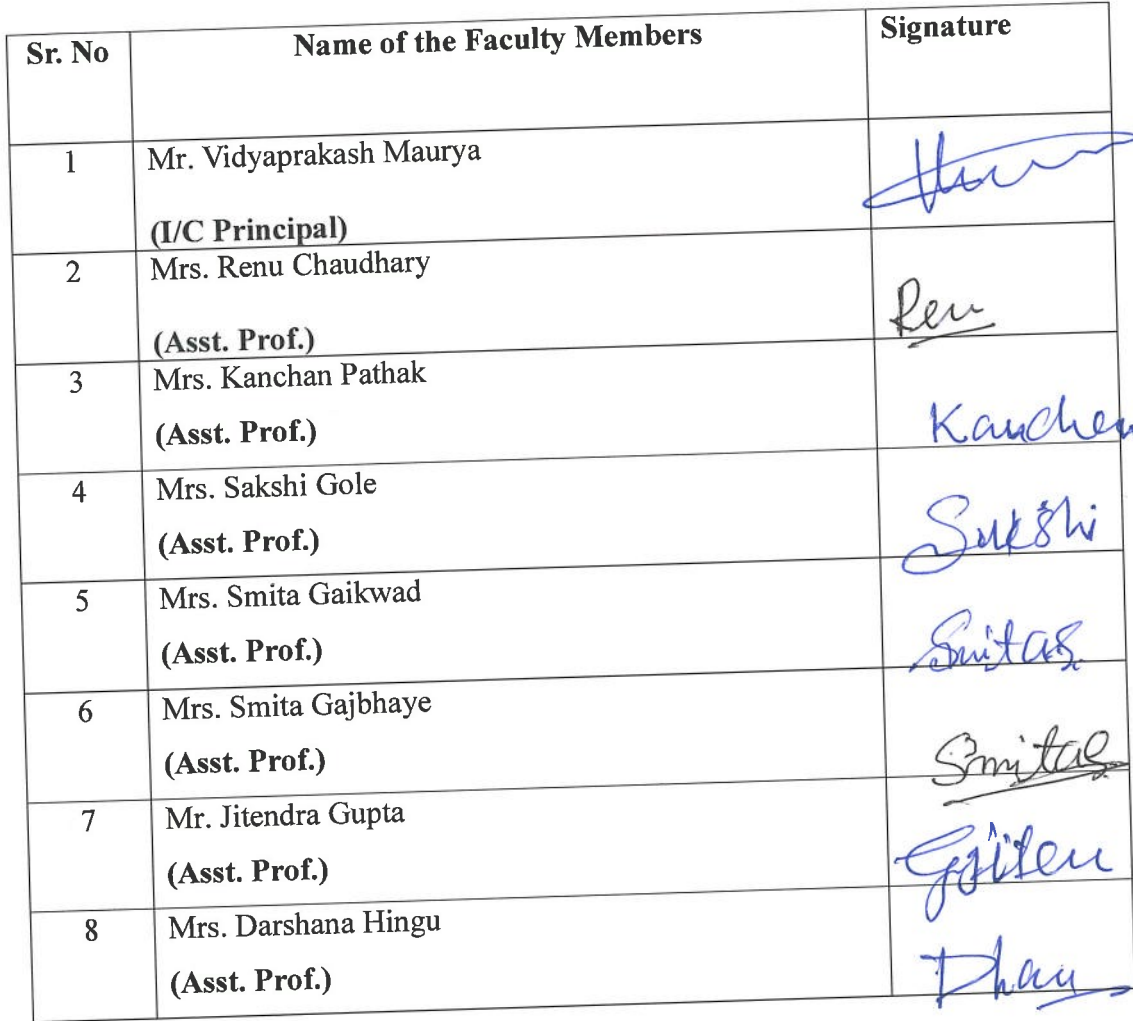 Sr. No Name of the Faculty Members Signature
1 Mr. Vidyaprakash Maurya
(I/C Principal)
2 Mrs. Renu Chaudhary
(Asst. Prof.) Ren
3 Mrs. Kanchan Pathak
(Asst. Prof.) Kanchan
4 Mrs. Sakshi Gole
(Asst. Prof.) Sakshi
5 Mrs. Smita Gaikwad
(Asst. Prof.) SmitaG
6 Mrs. Smita Gajbhaye
(Asst. Prof.) SmitaG
7 Mr. Jitendra Gupta
(Asst. Prof.)
8 Mrs. Darshana Hingu
(Asst. Prof.)